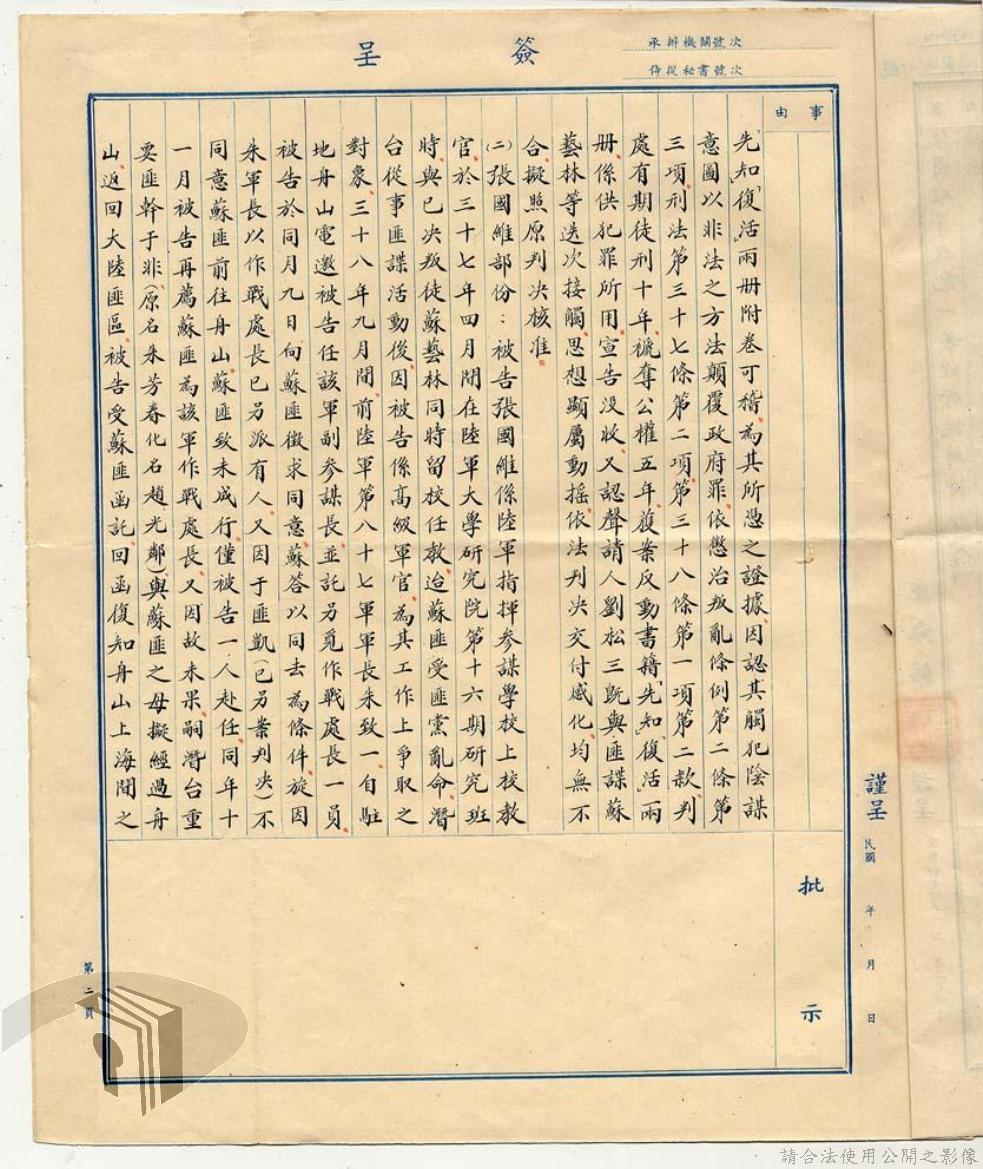 簽呈
承辦機關號次
侍從秘書號次
事由
先知」「復活」兩册附卷可稽、為其所憑之證據、因認其觸犯陰謀
意圖以非法之方法顛覆政府罪、依懲治叛亂條例第二條第
三項、刑法第三十七條第二項、第三十八條第一項第二款、判
處有期徒刑十年、褫奪公權五年、獲案反動書籍「先知」「復活」兩
册、係供犯罪所用、宣告没收、又認聲請人劉松三既與匪諜蘇
藝林等迭次接觸、思想顯屬動搖、依法判決交付感化、均無不
合、擬照原判決核准。
㈡張國維部份：被告張國維係陸軍指揮參謀學校上校教
官、於三十七年四月間在陸軍大學研究院第十六期研究班
時、與已決叛徒蘇藝林同時留校任教、迨蘇匪受匪黨亂命、潛
台從事匪諜活動後、因被告係高級軍官、為其工作上爭取之
對象、三十八年九月間、前陸軍第八十七軍軍長朱致一、自駐
地舟山電邀被告任該軍副參謀長、並託另覓作戰處長一員、
被告於同月九日向蘇匪徵求同意、蘇答以同去為條件、旋因
朱軍長以作戰處長已另派有人、又因于匪凱（已另案判決）不
同意蘇匪前往舟山、蘇匪致未成行、僅被告一人赴任、同年十
一月被告再薦蘇匪為該軍作戰處長、又因故未果、嗣潛台重
要匪幹于非（原名朱芳春化名趙光鄰）與蘇匪之母擬經過舟
山、返回大陸匪區、被告受蘇匪函託、回函復知舟山上海間之
批示
謹呈
民國 年 月 日
第二頁
請合法使用公開之影像